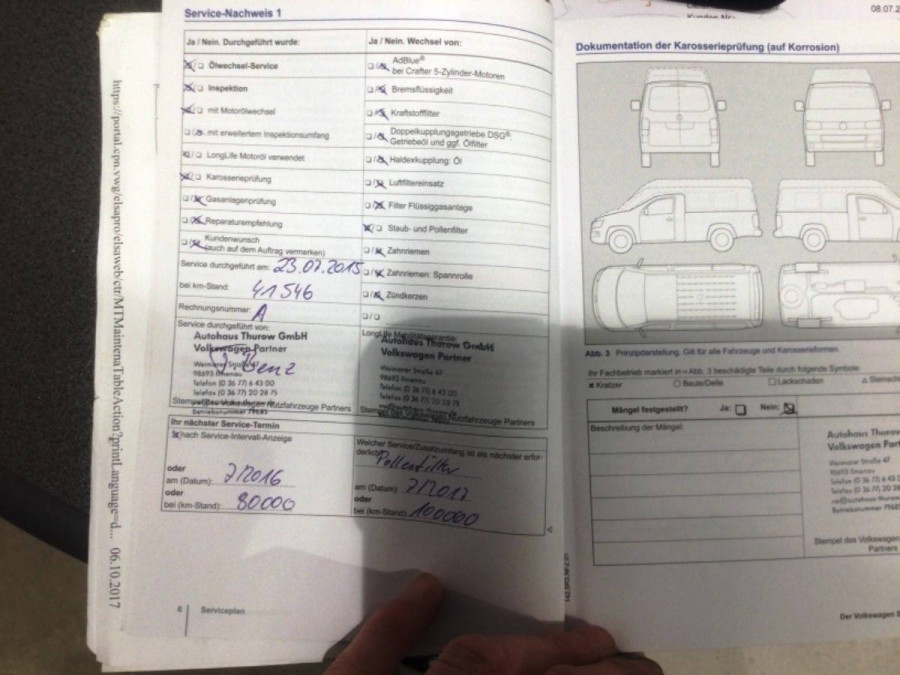 https://portal.cpn.vwg/elsapro/elsaweb/ctr/MTMaintenaTableAction?printLanguage=d... 06.10.2017
Service-Nachweis 1
Ja / Nein. Durchgeführt wurde:
Ölwechsel-Service
Inspektion
mit Motorölwechsel
mit erweitertem Inspektionsumfang
LongLife Motoröl verwendet
Karosserieprüfung
Gasanlagenprüfung
Reparaturempfehlung
Kundenwunsch
(auch auf dem Auftrag vermerken)
Service durchgeführt am: 23.07.2015
bei km-Stand: 41546
Rechnungsnummer: A
Service durchgeführt von:
Autohaus Thurow GmbH
Volkswagen Partner
Weimarer Straße 47
98693 Ilmenau
Telefon (0 36 77) 6 43 00
Telefax (0 36 77) 20 28 75
Stempel des Volkswagen Nutzfahrzeuge Partners
Betriebsnummer 79685
Ja / Nein. Wechsel von:
AdBlue®
bei Crafter 5-Zylinder-Motoren
Bremsflüssigkeit
Kraftstofffilter
Doppelkupplungsgetriebe DSG®:
Getriebeöl und ggf. Ölfilter
Haldexkupplung: Öl
Luftfiltereinsatz
Filter Flüssiggasanlage
Staub- und Pollenfilter
Zahnriemen
Zahnriemen: Spannrolle
Zündkerzen
LongLife Mobilitätsgarantie:
Autohaus Thurow GmbH
Volkswagen Partner
Weimarer Straße 47
98693 Ilmenau
Telefon (0 36 77) 6 43 00
Telefax (0 36 77) 20 28 75
Stempel des Volkswagen Nutzfahrzeuge Partners
Ihr nächster Service-Termin
nach Service-Intervall-Anzeige
oder
am (Datum): 7/2016
oder
bei (km-Stand): 80000
Welcher Service/Zusatzumfang ist als nächster erfor-
derlich: Pollenfilter
am (Datum): 7/2017
oder
bei (km-Stand): 100000
6 Serviceplan
08.07.2
Dokumentation der Karosserieprüfung (auf Korrosion)
Abb. 3 Prinzipdarstellung. Gilt für alle Fahrzeuge und Karosserieformen.
Ihr Fachbetrieb markiert in « Abb. 3 beschädigte Teile durch folgende Symbole:
× Kratzer ○ Beule/Delle □ Lackschaden △ Steinschl
Mängel festgestellt? Ja: Nein:
Beschreibung der Mängel:
Autohaus Thurow
Volkswagen Part
Weimarer Straße 47
98693 Ilmenau
Telefon (0 36 77) 6 43
Telefax (0 36 77) 20 28
Betriebsnummer 7968
Stempel des Volkswagen
Partners
Der Volkswagen S